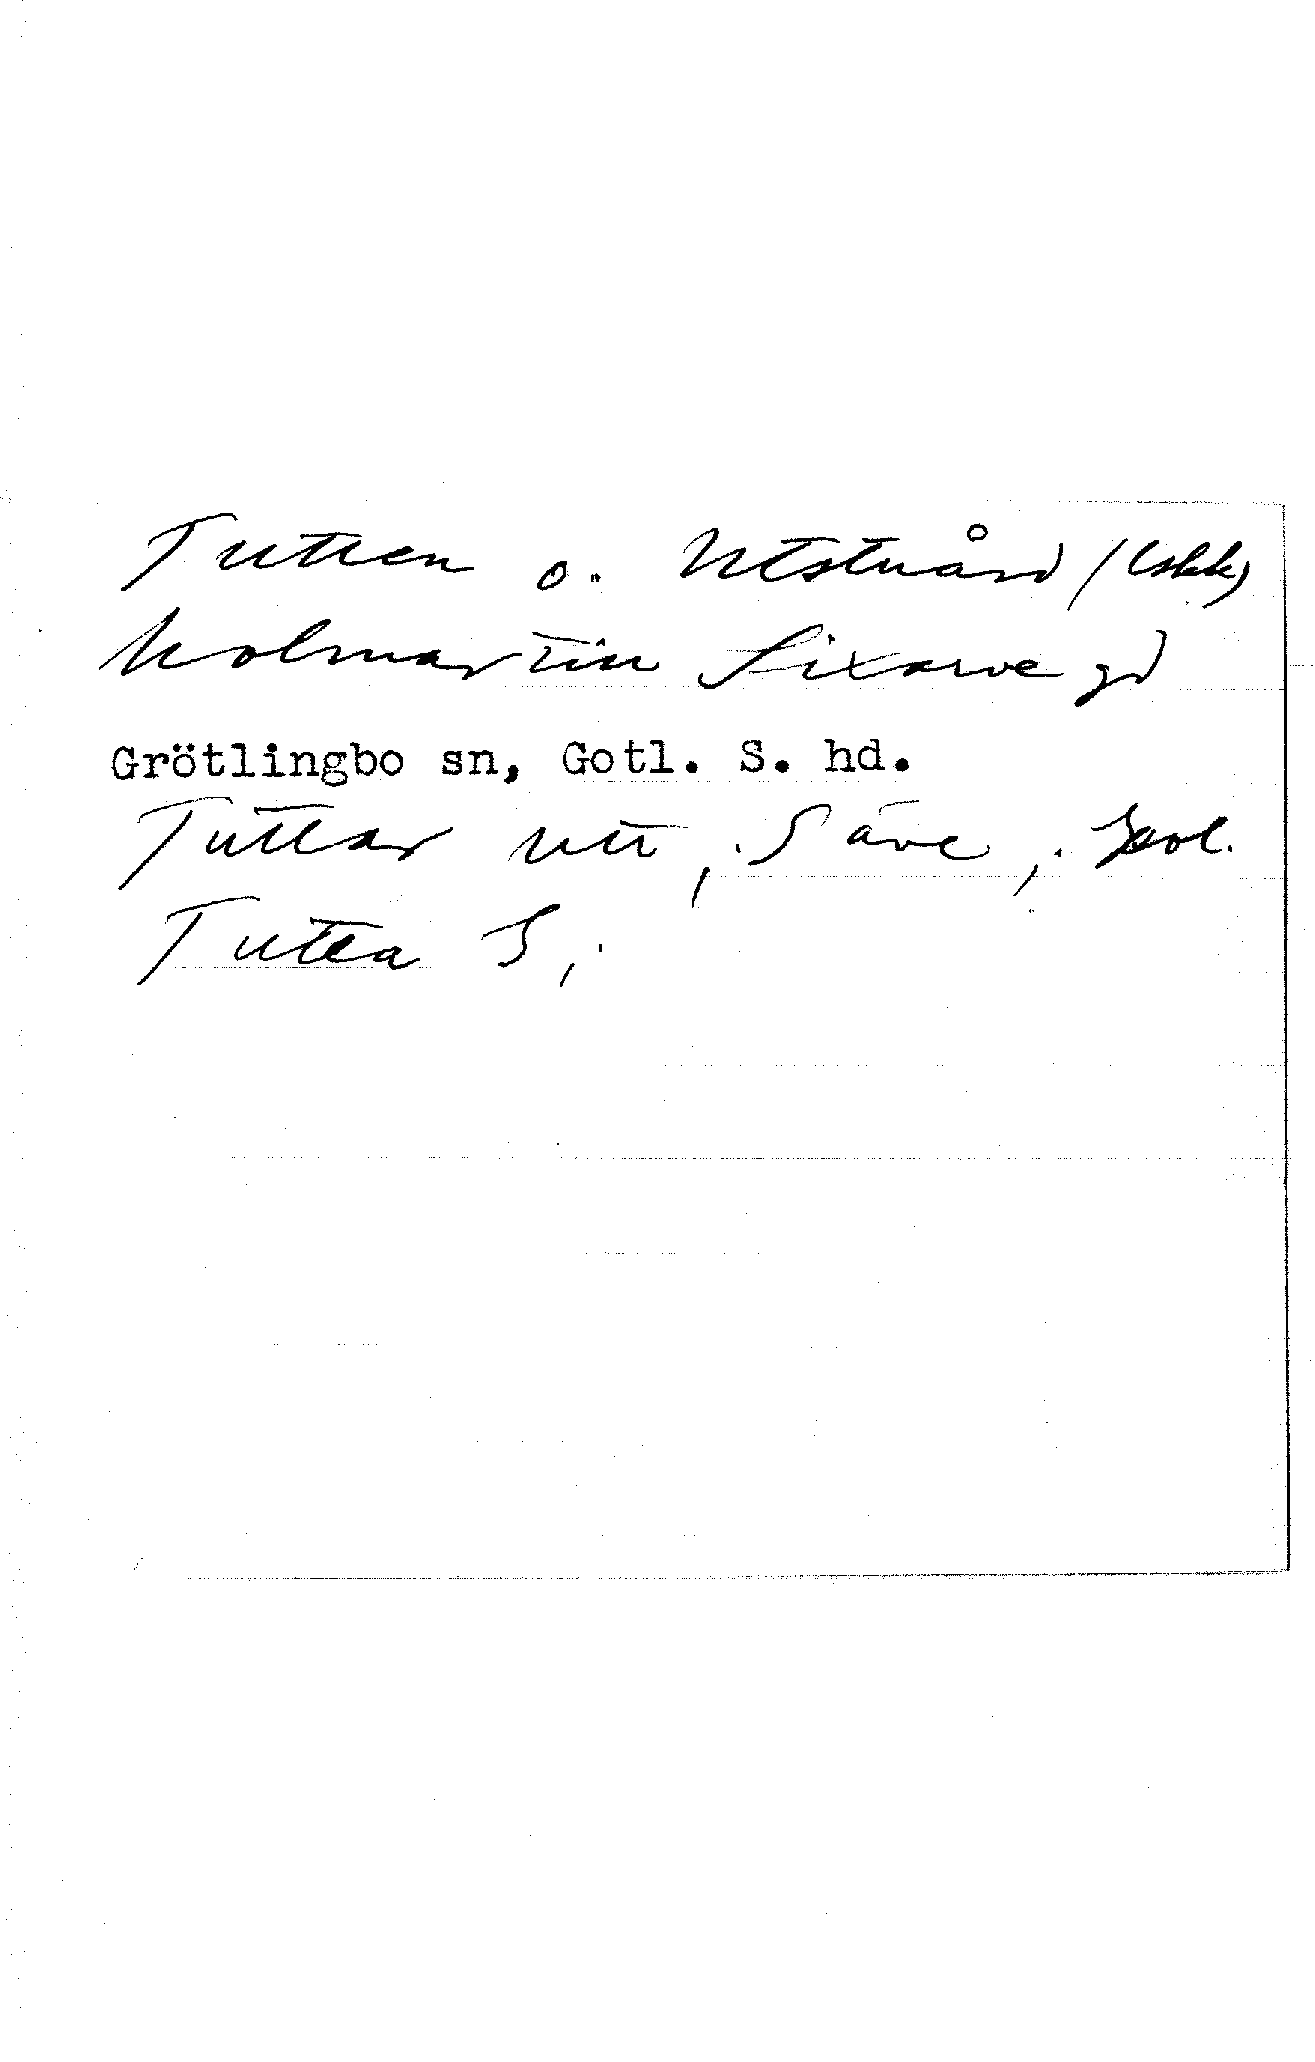 Tutten o. Utstuård / (skk)
Kolmartin Sixarve gd
Grötlingbo sn, Gotl. S. hd.
Tuttar utt, Säve,
Tutta S,